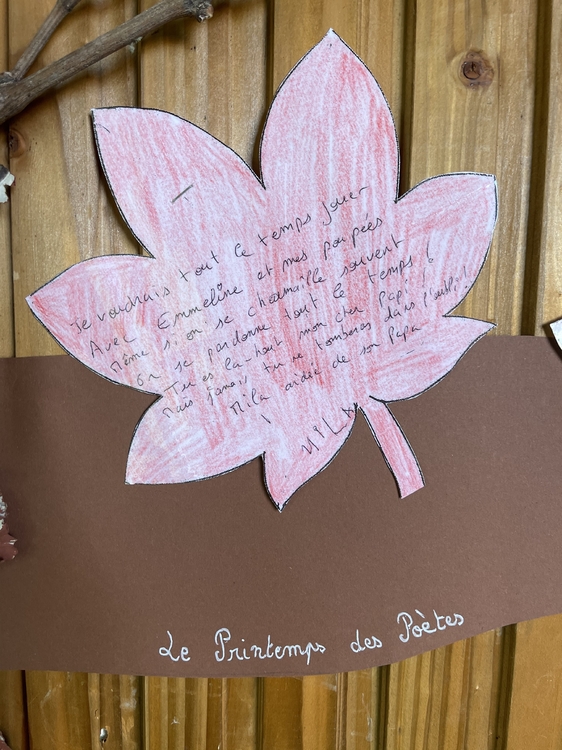 Je voudrais tout le temps jouer
Avec Emmeline et mes poupées
Même si on se chamaille souvent
On se pardonne tout le temps !
Tu es là-haut mon cher Papi !
Mais jamais tu ne tomberas dans l'oubli !
Mila aidée de son Papa
MILA
Le Printemps des Poètes